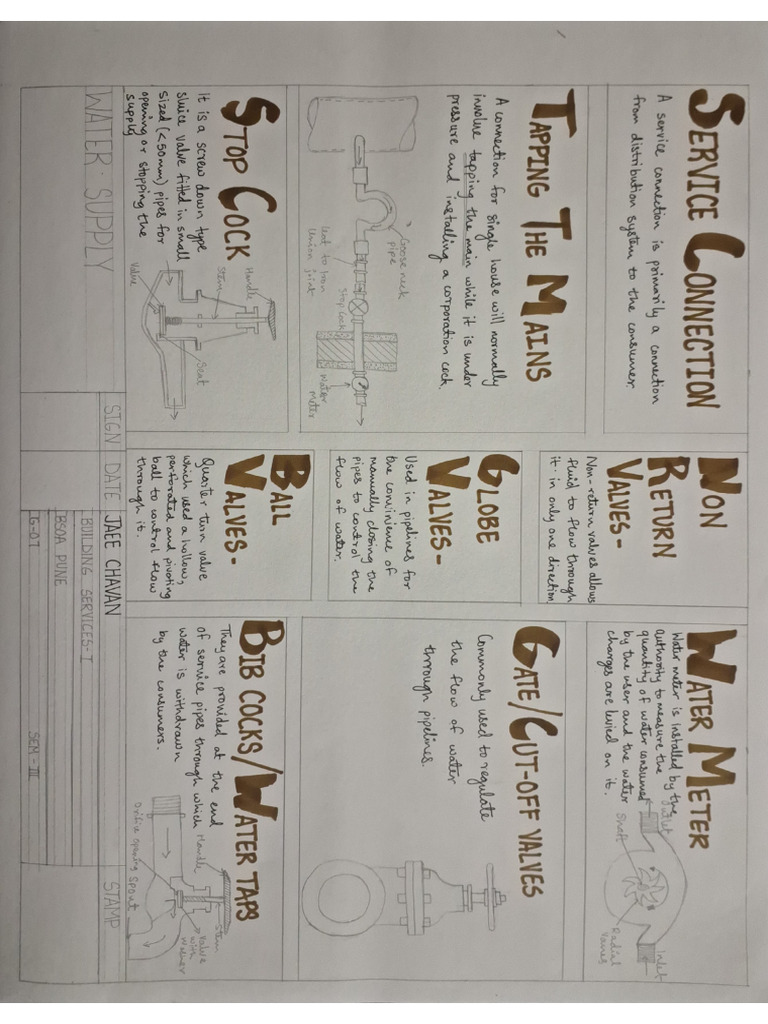 SERVICE CONNECTION
A service connection is primarily a connection
from distribution system to the consumer.
TAPPING THE MAINS
A connection for single house will normally
involve tapping the main while it is under
pressure and installing a corporation cock.
Goose neck
pipe
Stop Cock
Leat to Iron
Union joint
Water
Meter
STOP COCK
It is a screw down type
sluice valve fitted in small
sized (<50mm) pipes for
opening or stopping the
supply
Handle
Stem
Valve
Seat
NON
RETURN
VALVES-
Non-return valves allows
fluid to flow through
it in only one direction
GLOBE
VALVES-
Used in pipelines for
the convinience of
manually closing the
pipes to control the
flow of water.
BALL
VALVES-
Quarter turn valve
which used a hollow,
perforated and pivoting
ball to control flow
through it.
WATER METER
Water meter is installed by the
authority to measure the
quantity of water consumed
by the user and the water
charges are levied on it.
Outlet
Shaft
Inlet
Radial
Vanes
GATE/CUT-OFF VALVES
Commonly used to regulate
the flow of water
through pipelines.
BIB COCKS/WATER TAPS
They are provided at the end
of service pipes through which
water is withdrawn
by the consumers.
Handle
Stem
Valve
with
washer
Orifice opening spout
WATER · SUPPLY
SIGN
DATE
JAEE CHAVAN
BUILDING SERVICES-I
BSOA PUNE
G-07
SEM-III
STAMP